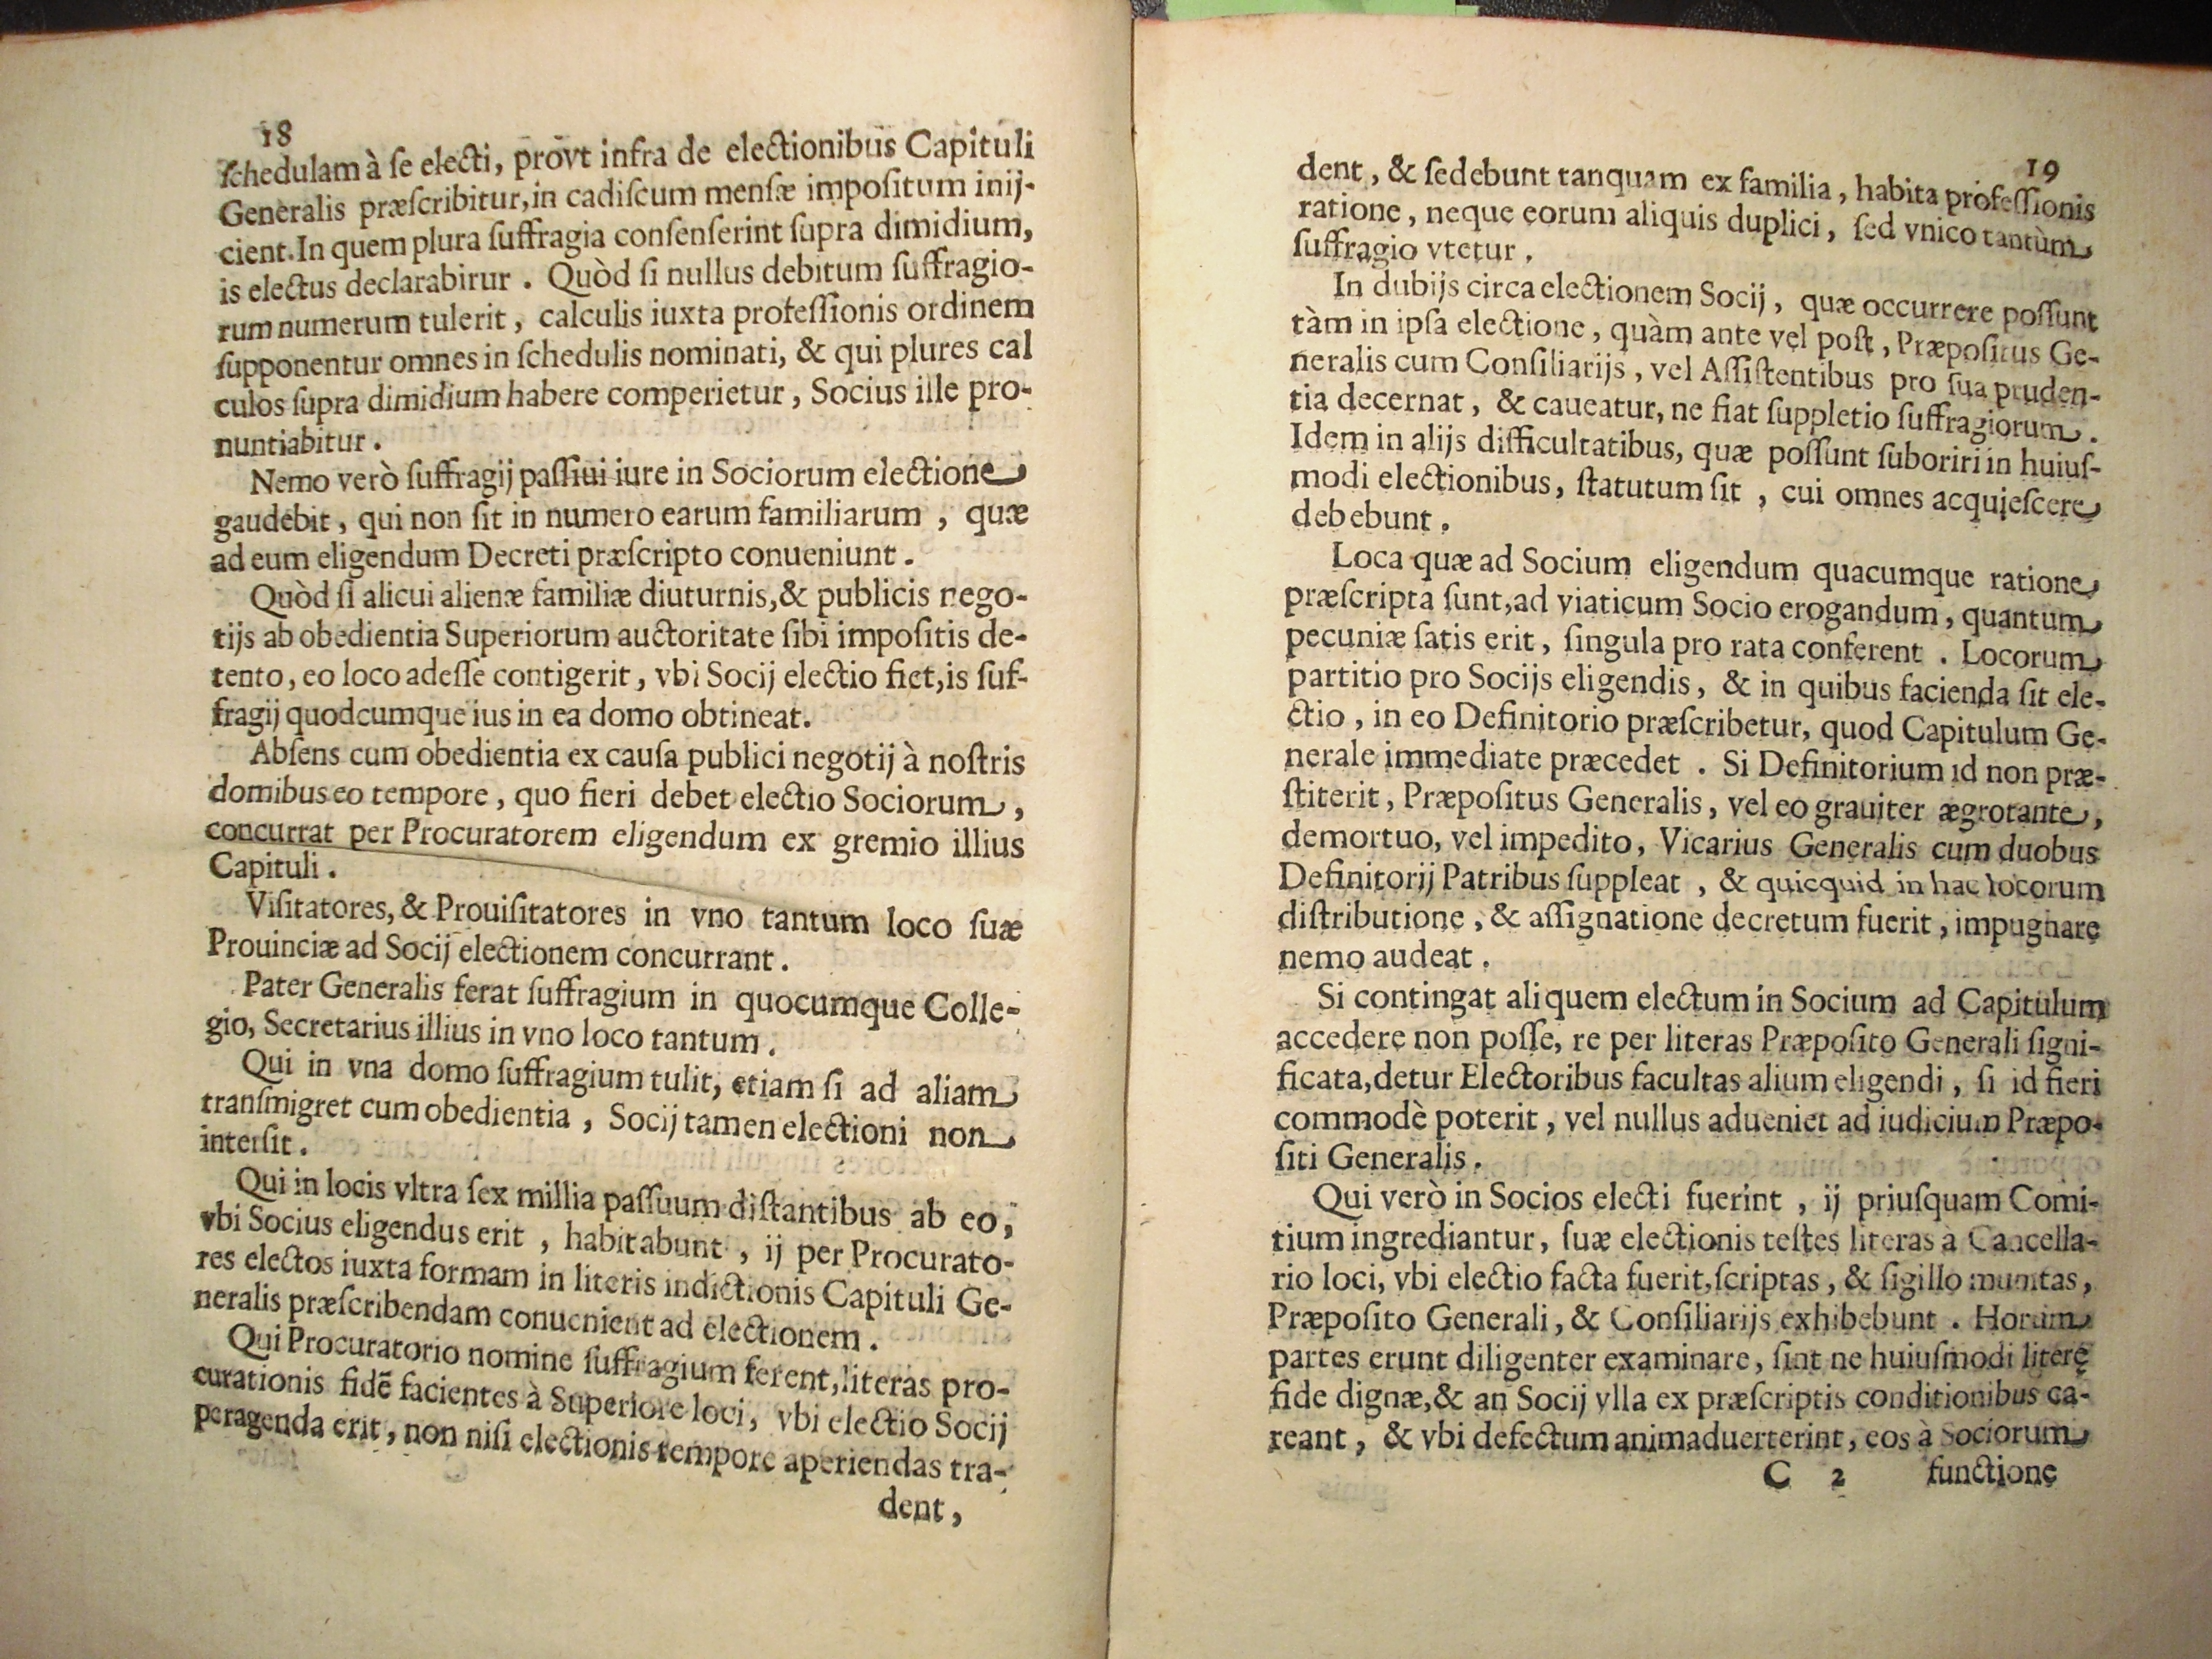 18
ſchedulam à ſe electi, provt infra de electionibus Capituli
Generalis præſcribitur, in cadiſcum menſæ impoſitum inij-
cient. In quem plura ſuffragia conſenſerint ſupra dimidium,
is electus declarabirur . Quòd ſi nullus debitum ſuffragio-
rum numerum tulerit , calculis iuxta profeſſionis ordinem
ſupponentur omnes in ſchedulis nominati, & qui plures cal
culos ſupra dimidium habere comperietur , Socius ille pro-
nuntiabitur .
Nemo verò ſuffragij paſſiui iure in Sociorum electione
gaudebit , qui non ſit in numero earum familiarum , quæ
ad eum eligendum Decreti præſcripto conueniunt .
Quòd ſi alicui alienæ familiæ diuturnis, & publicis nego-
tijs ab obedientia Superiorum auctoritate ſibi impoſitis de-
tento , eo loco adeſſe contigerit , vbi Socij electio fiet, is ſuf-
fragij quodcumque ius in ea domo obtineat.
Abſens cum obedientia ex cauſa publici negotij à noſtris
domibus eo tempore , quo fieri debet electio Sociorum ,
concurrat per Procuratorem eligendum ex gremio illius
Capituli .
Viſitatores, & Prouiſitatores in vno tantum loco ſuæ
Prouinciæ ad Socij electionem concurrant .
Pater Generalis ferat ſuffragium in quocumque Colle-
gio, Secretarius illius in vno loco tantum .
Qui in vna domo ſuffragium tulit, etiam ſi ad aliam
tranſmigret cum obedientia , Socij tamen electioni non
interſit .
Qui in locis vltra ſex millia paſſuum diſtantibus ab eo ,
vbi Socius eligendus erit , habitabunt , ij per Procurato-
res electos iuxta formam in literis indictionis Capituli Ge-
neralis præſcribendam conuenient ad electionem .
Qui Procuratorio nomine ſuffragium ferent, literas pro-
curationis fidē facientes à Superiore loci, vbi electio Socij
peragenda erit , non niſi electionis tempore aperiendas tra-
dent ,
19
dent , & ſedebunt tanquam ex familia , habita profeſſionis
ratione , neque eorum aliquis duplici , ſed vnico tantùm
ſuffragio vtetur .
In dubijs circa electionem Socij , quæ occurrere poſſunt
tàm in ipſa electione , quàm ante vel poſt , Præpoſitus Ge-
neralis cum Conſiliarijs , vel Aſſiſtentibus pro ſua pruden-
tia decernat , & caueatur, ne fiat ſuppletio ſuffragiorum .
Idem in alijs difficultatibus, quæ poſſunt ſuboriri in huiuſ-
modi electionibus , ſtatutum ſit , cui omnes acquieſcere
debebunt .
Loca quæ ad Socium eligendum quacumque ratione
præſcripta ſunt, ad viaticum Socio erogandum , quantum
pecuniæ ſatis erit , ſingula pro rata conferent . Locorum
partitio pro Socijs eligendis , & in quibus facienda ſit ele-
ctio , in eo Definitorio præſcribetur, quod Capitulum Ge-
nerale immediate præcedet . Si Definitorium id non præ-
ſtiterit , Præpoſitus Generalis , vel eo grauiter ægrotante ,
demortuo, vel impedito, Vicarius Generalis cum duobus
Definitorij Patribus ſuppleat , & quicquid in hac locorum
diſtributione , & aſſignatione decretum fuerit , impugnare
nemo audeat .
Si contingat aliquem electum in Socium ad Capitulum
accedere non poſſe, re per literas Præpoſito Generali ſigni-
ficata, detur Electoribus facultas alium eligendi , ſi id fieri
commodè poterit , vel nullus adueniet ad iudicium Præpo-
ſiti Generalis .
Qui verò in Socios electi fuerint , ij priuſquam Comi-
tium ingrediantur, ſuæ electionis teſtes literas à Cancella-
rio loci, vbi electio facta fuerit, ſcriptas , & ſigillo munitas ,
Præpoſito Generali , & Conſiliarijs exhibebunt . Horum
partes erunt diligenter examinare , ſint ne huiuſmodi literę
fide dignæ, & an Socij vlla ex præſcriptis conditionibus ca-
reant , & vbi defectum animaduerterint , eos à Sociorum
C 2 functione